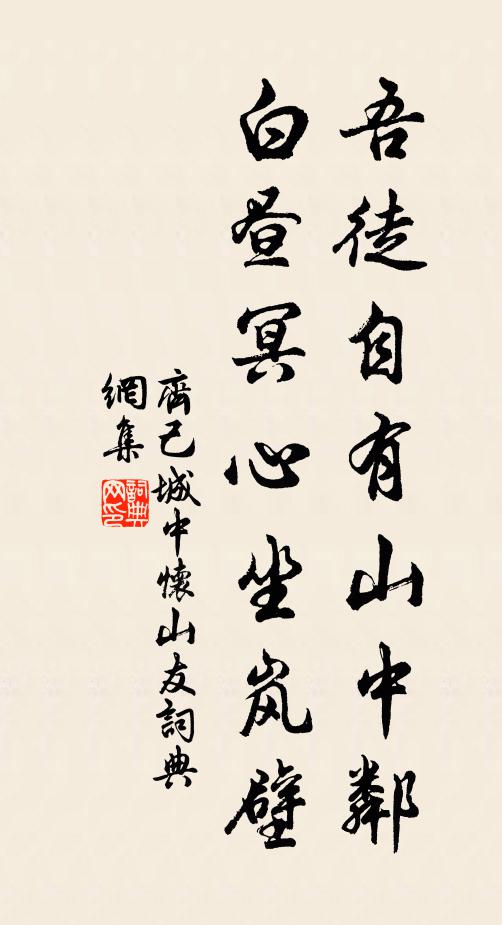 吾徒自有山中鄰
白昼冥心坐岚壁
齊己城中懷山友詞典
網集
詞典
网印